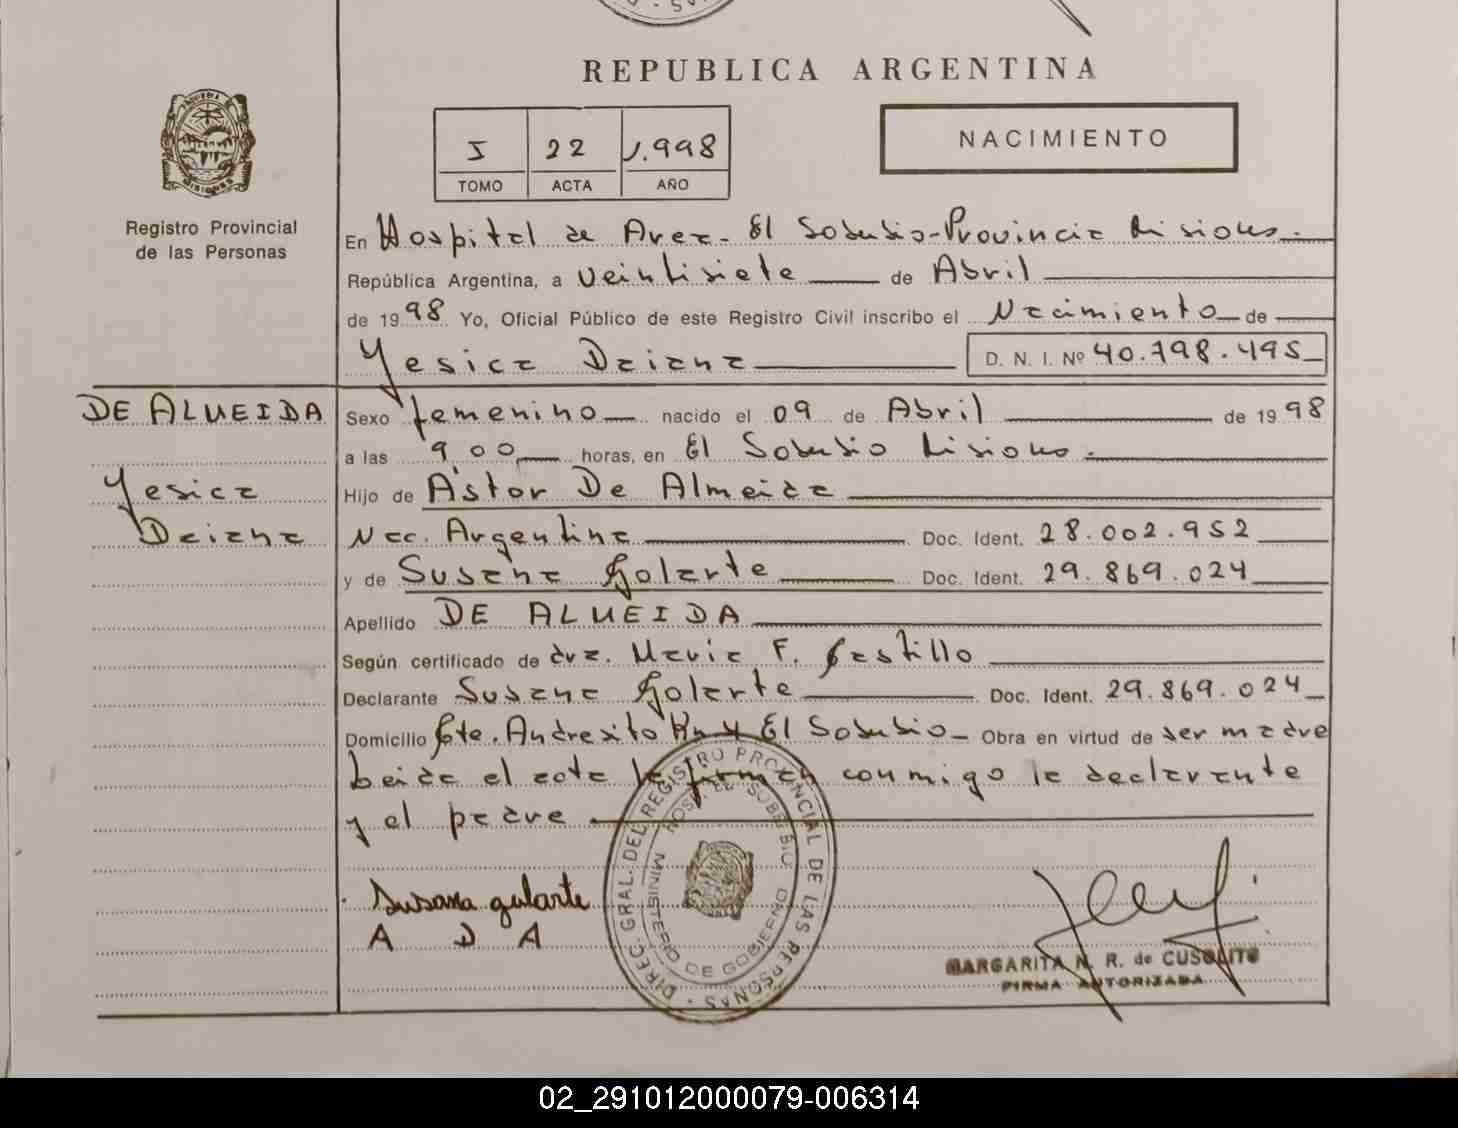 REPUBLICA ARGENTINA
I 22 1.998
TOMO ACTA AÑO
NACIMIENTO
Registro Provincial
de las Personas
En Hospital de Area - El Soberbio - Provincia Misiones.
República Argentina, a veintisiete de Abril
de 1998 Yo, Oficial Público de este Registro Civil inscribo el Nacimiento de
Yesica Daiana D. N. I. Nº 40.798.495
DE ALMEIDA
Yesica
Daiana
Sexo femenino nacido el 09 de Abril de 1998
a las 9,00 horas, en El Soberbio Misiones.
Hijo de Astor De Almeida
Nac. Argentina Doc. Ident. 28.002.952
y de Susana Golarte Doc. Ident. 29.869.024
Apellido DE ALMEIDA
Según certificado de dra. Maria F. Castillo
Declarante Susana Golarte Doc. Ident. 29.869.024
Domicilio Cte. Andresito El Soberbio Obra en virtud de ser madre
leida el acta la firman conmigo la declarante
y el padre
Susana gularte
A D A
DIREC. GRAL. DEL REGISTRO PROVINCIAL DE LAS PERSONAS
MINISTERIO DE GOBIERNO
MARGARITA N. R. de CUSOLITO
FIRMA AUTORIZADA
02_291012000079-006314